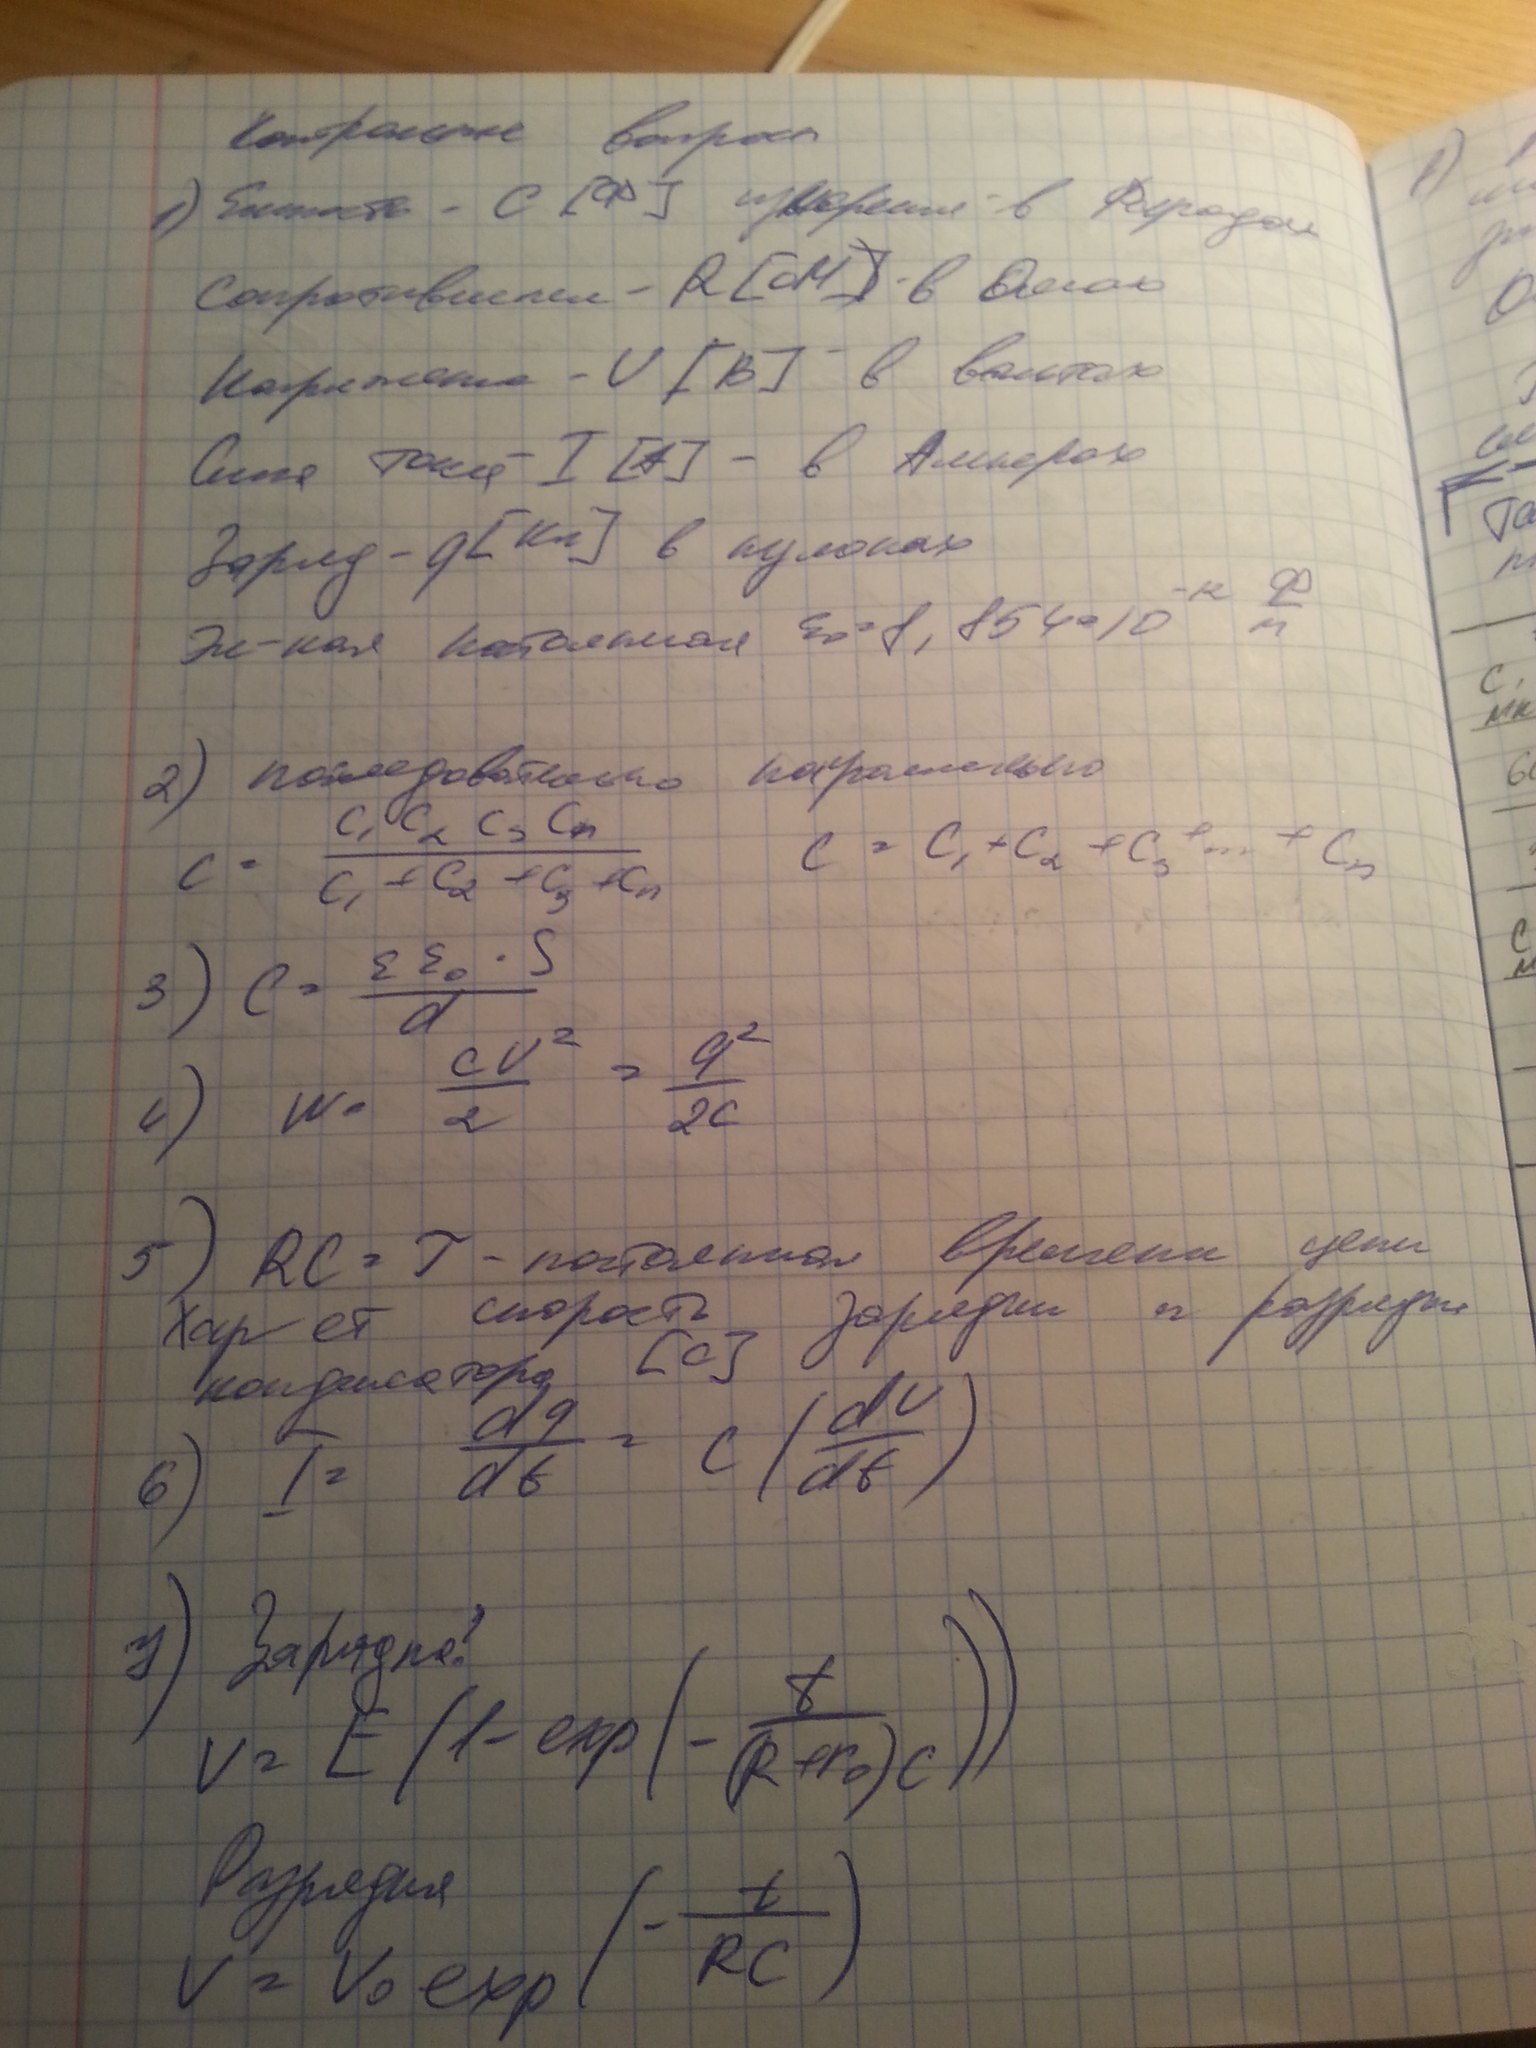 Контрольные вопросы
1) Емкость - C [Ф] измерение - в Фарадах
Сопротивление - R [Ом] - в Омах
Напряжение - U [В] - в вольтах
Сила тока - I [A] - в Амперах
Заряд - q [Кл] в кулонах
Эл-кая постоянная ε₀ = 8,854 · 10⁻¹² Ф/м
2) последовательно параллельно
C = (C₁ C₂ C₃ Cₙ)/(C₁ + C₂ + C₃ + Cₙ) C = C₁ + C₂ + C₃ + ... + Cₙ
3) C = (ε ε₀ · S)/d
4) W = CU²/2 = q²/2C
5) RC = τ - постоянная времени цепи
Хар-ет скорость зарядки и разрядки
конденсатора [с]
6) I = dq/dt = C (dU/dt)
7) Зарядка:
U = E (1 - exp (- t/((R + r₀) C)))
Разрядка
U = U₀ exp (- t/RC)